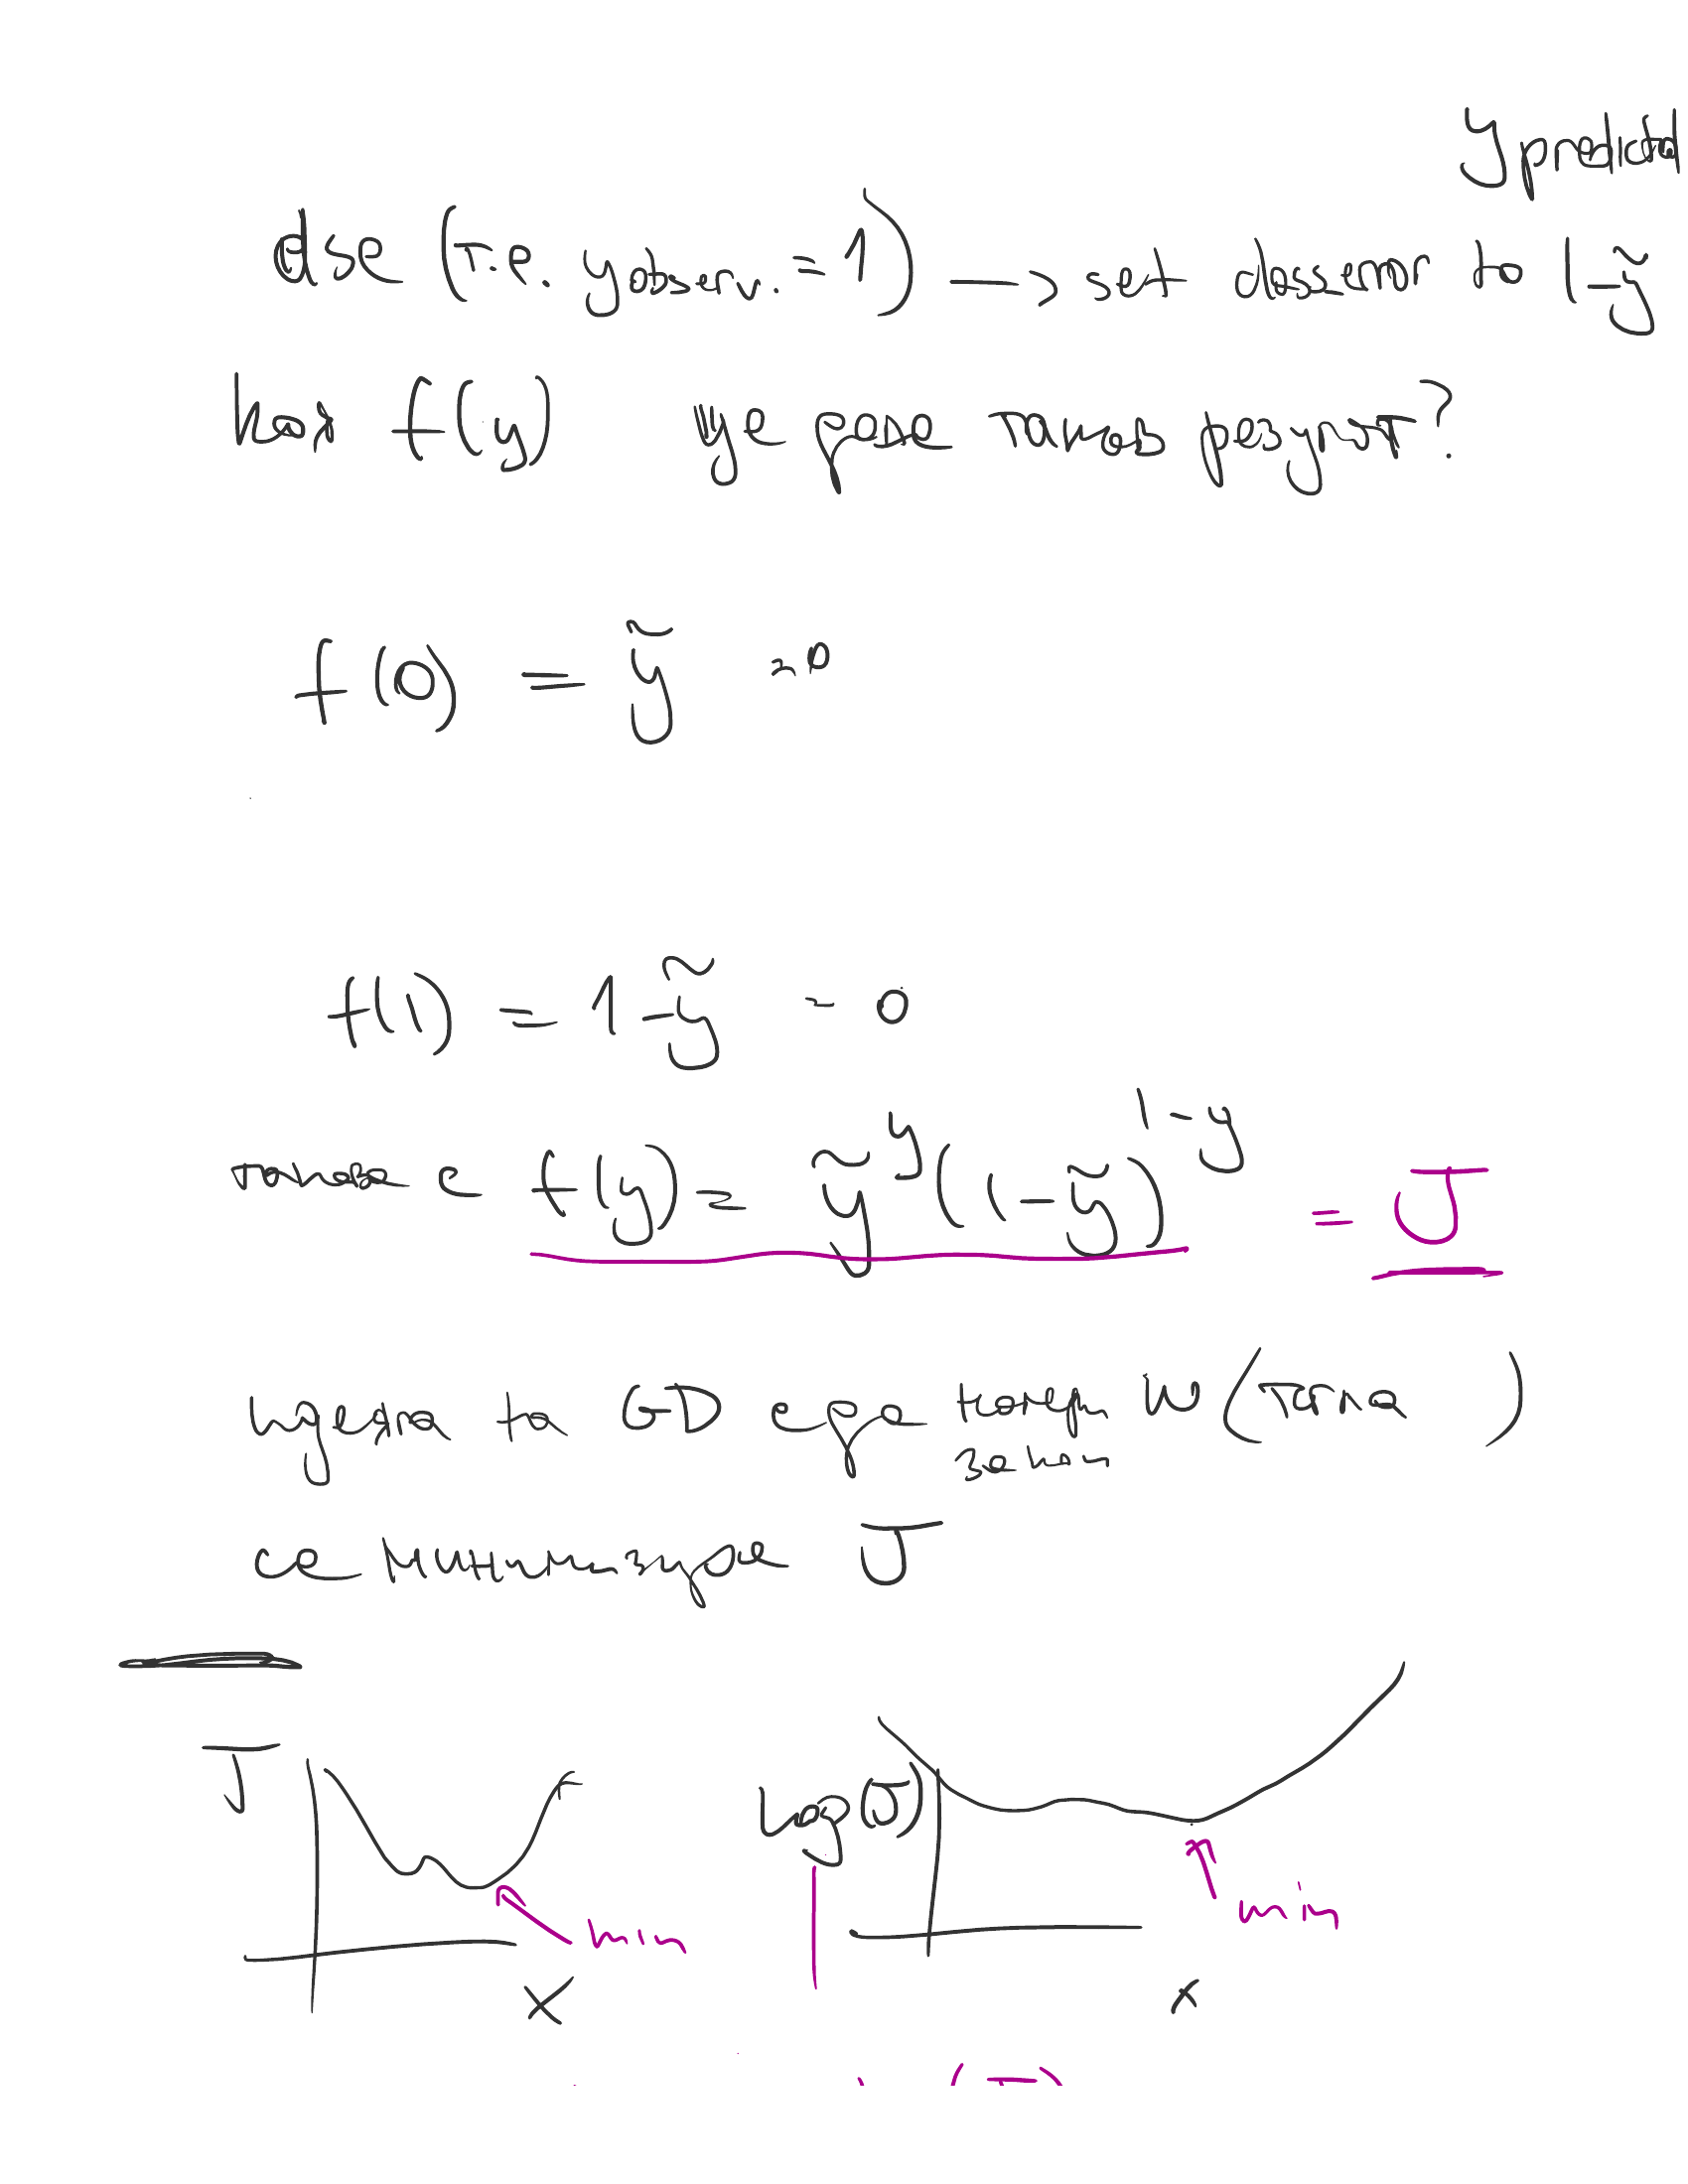 y predicted
else (т.е. y observ. = 1) → set class error to 1-ỹ
коя f(y) ще даде такъв резултат?
f(0) = ỹ = 0
f(1) = 1-ỹ = 0
такава е f(y) = ỹ^y (1-ỹ)^(1-y) = J
идеята на GD е да намери W (тегла )
за кои
се минимизира J
J Log(J)
min min
x x